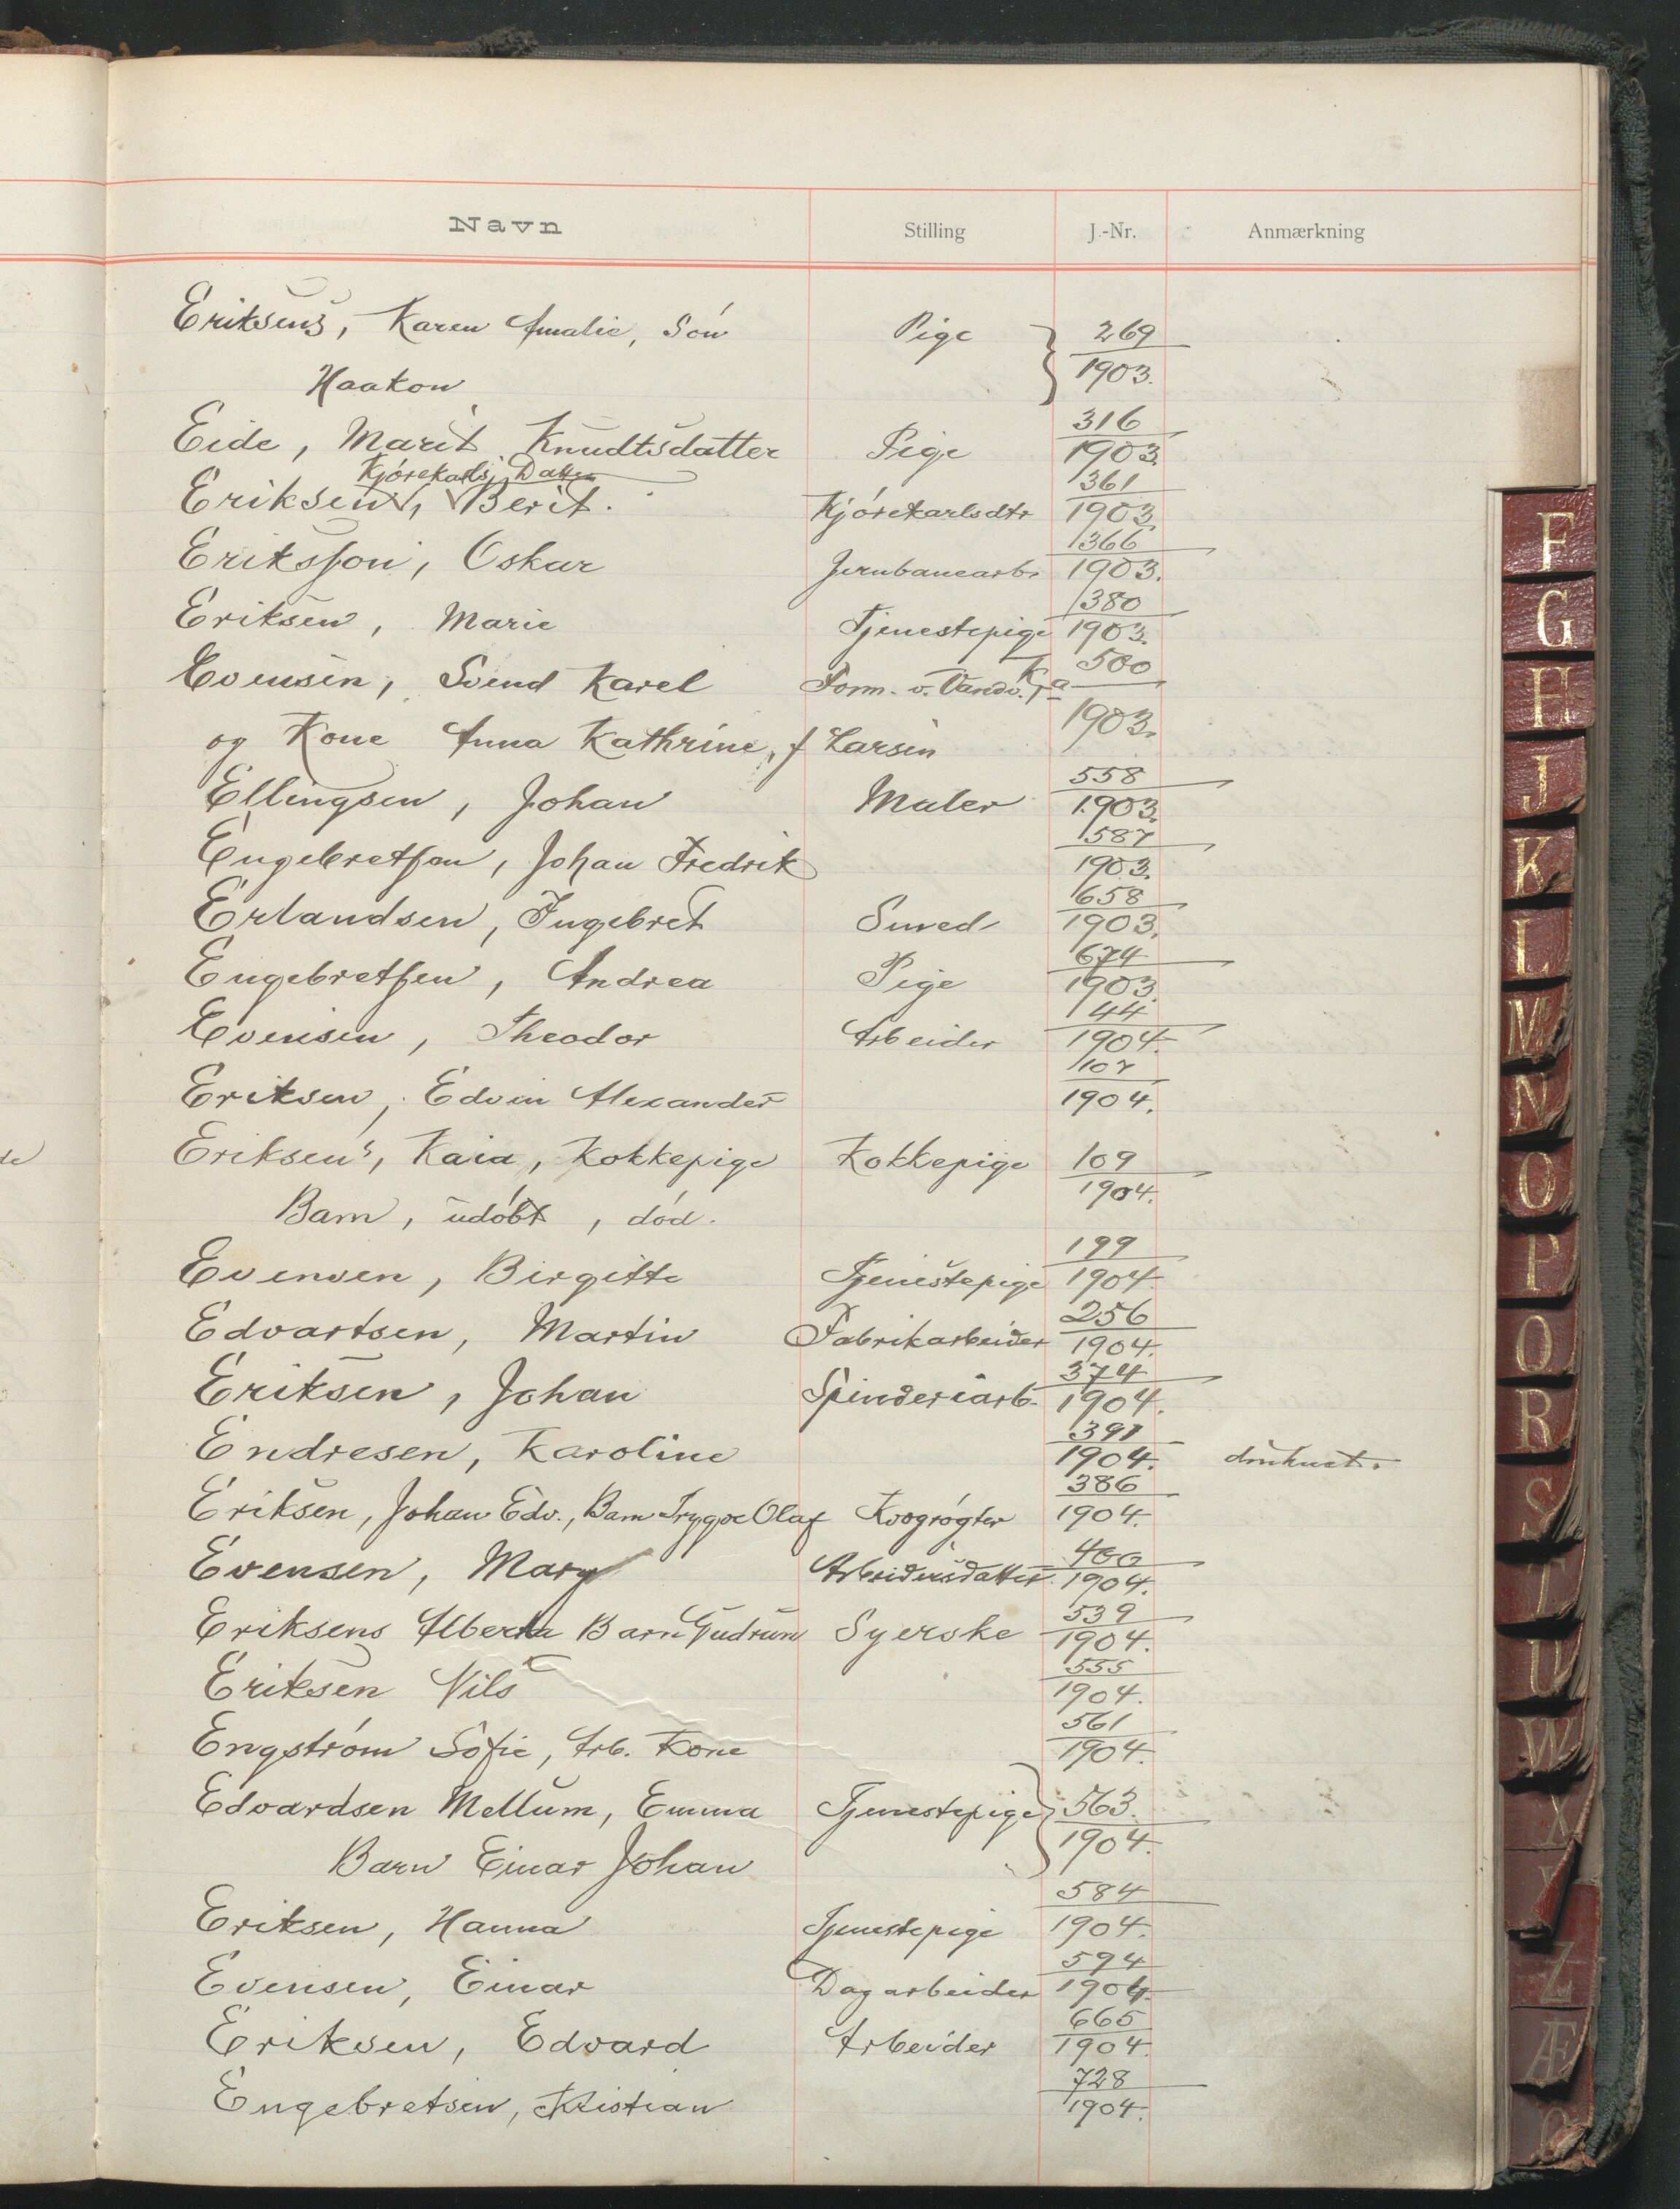 Navn Stilling J.-Nr. Anmærkning
Eriksens, Karen Amalie, Søn Pige 269
Haakon 1903.
316
Eide, Marit Knudtsdatter Pige 1903.
Kjørekarls, Datter 361
Eriksen, Berit. Kjørekarlsdtr 1903.
366
Eriksson, Oskar Jernbanearb. 1903.
380
Eriksen, Marie Tjenestepige 1903.
500
Evensen, Svend Karel Form. v. Vandv.
og Kone Anna Kathrine, f Larsen 1903.
558
Ellingsen, Johan Maler 1903.
587
Engebretsen, Johan Fredrik 1903.
658
Erlandsen, Ingebret Smed 1903.
674
Engebretsen, Andrea Pige 1903.
44
Evensen, Theodor Arbeider 1904.
107
Eriksen, Edvin Alexander 1904.
Eriksens, Kaia, Kokkepige Kokkepige 109
Barn, udøbt, død. 1904.
199
Evensen, Birgitte Tjenestepige 1904.
256
Edvartsen, Martin Fabrikarbeider 1904.
374
Eriksen, Johan Spinderiarb. 1904.
391
Endresen, Karoline 1904. druknet.
386
Eriksen, Johan Edv., Barn Trygve Olaf Kvogrøgter 1904.
400
Evensen, Mary Arbeidersdatter 1904.
539
Eriksens Alberta Barn Gudrun Syerske 1904.
555
Eriksen Nils 1904.
561
Engstrøm Sofie, Arb. Kone 1904.
Edvardsen Mellum, Emma Tjenestepige 563.
Barn Einar Johan 1904.
584
Eriksen, Hanna Tjenestepige 1904.
594
Evensen, Einar Dagarbeider 1904.
665
Eriksen, Edvard Arbeider 1904.
728
Engebretsen, Kristian 1904.
F
G
H
J
K
L
M
N
O
P
Q
R
S
T
U
W
X
Y
Z
Æ